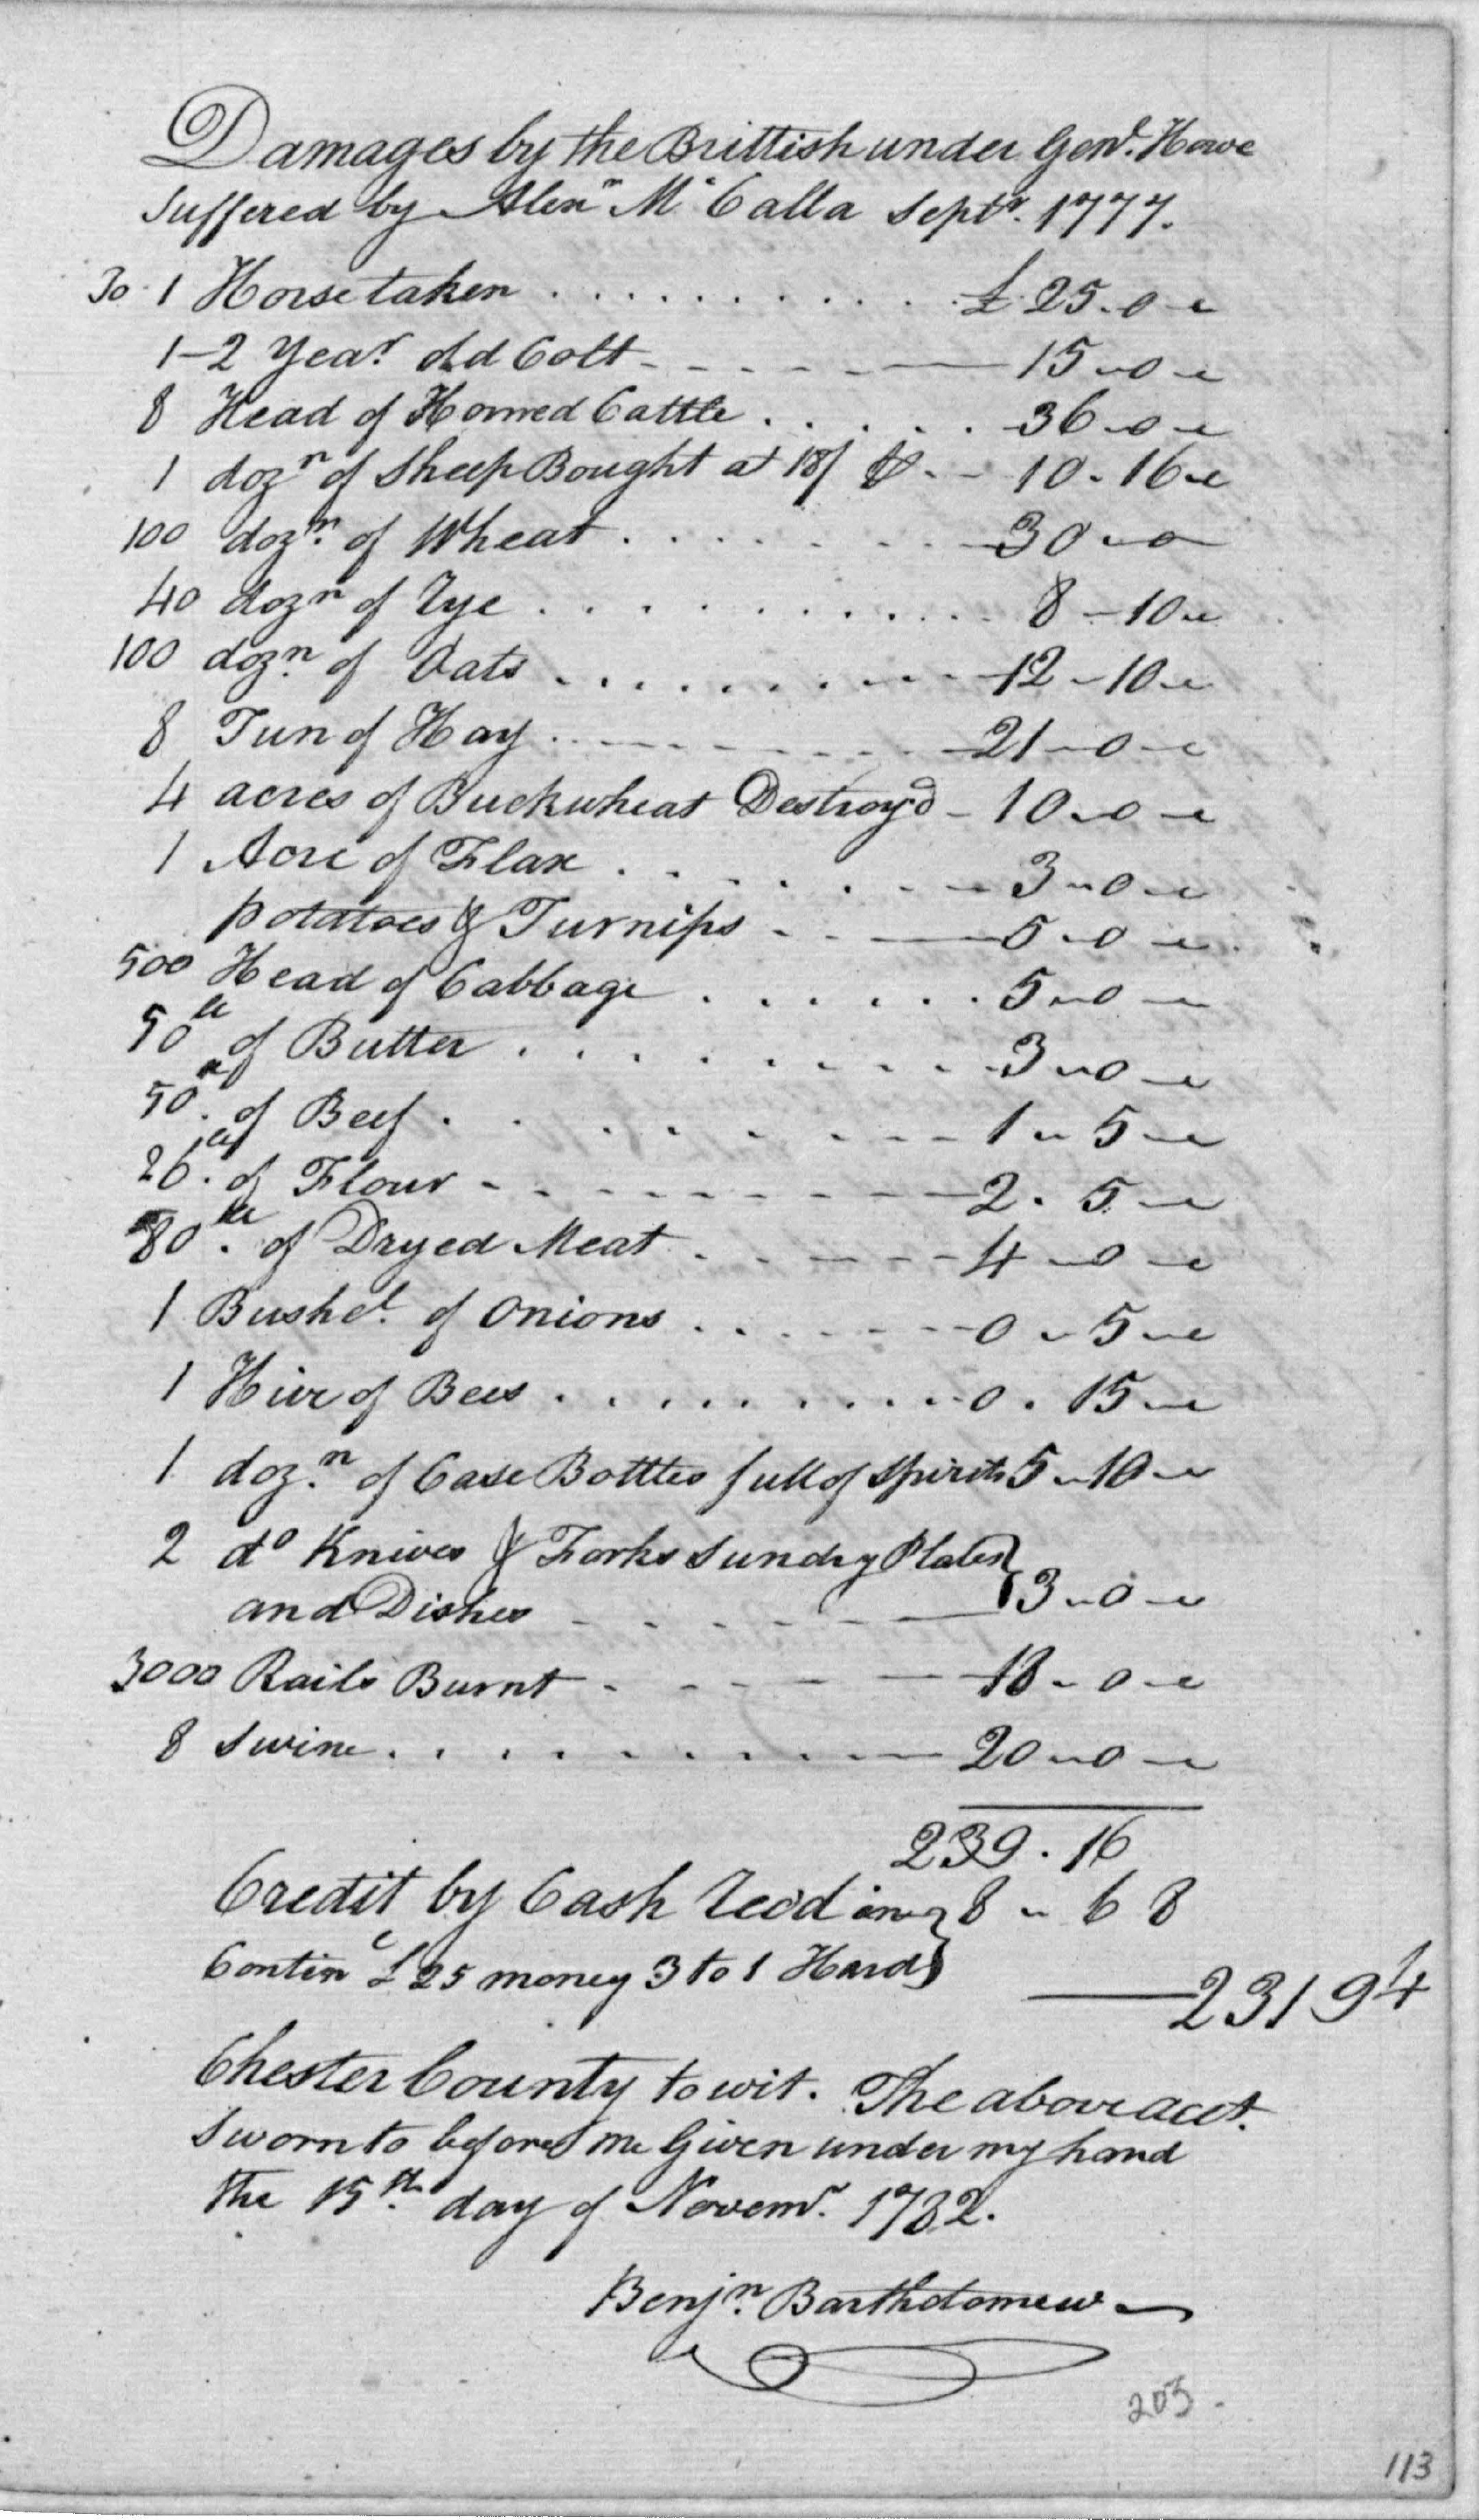 Damages by the Brittish under Genl. Howe
Suffered by Alexr Mc Calla Septr. 1777.
To 1 Horse taken . . . . . . . . . . . £ 25 - 0 -
1-2 Year old Colt - - - - - 15 - 0 -
8 Head of Horned Cattle . . . . . 36 - 0 -
1 dozn of Sheep Bought at 18/ ℔ - - 10 - 16 -
100 dozn. of Wheat . . . . . . . 30 - 0
40 dozn of Rye . . . . . . . . . 8 - 10 -
100 dozn. of Oats . . . . . . . . 12 - 10 -
8 Tun of Hay . . - - - - - - 21 - 0 -
4 acres of Buckwheat Destroyd - 10 - 0 -
1 Acre of Flax . . . . . . . - 3 - 0 -
potatoes & Turnips - - - 5 - 0 -
500 Head of Cabbage . . . . . . 5 - 0 -
50 lb of Butter . . . . . . . . 3 - 0 -
50 lb. of Beef . . . . . . . - - 1 - 5 -
26 lb. of Flour - - - - - - - - 2 . 5 -
80 lb. of Dryed Meat . . - - - 4 - 0 -
1 Bushel. of Onions . . . - - - 0 - 5 -
1 Hive of Bees . . . . . . . . . 0 . 15 -
1 dozn. of Case Bottles full of Spirits 5 - 10 -
2 do Knives & Forks Sundry Plates }
and Dishes - - - - - } 3 - 0 -
3000 Rails Burnt - - - - - 18 - 0 -
8 Swine . . . . . . . . . 20 - 0 -
239 . 16
Credit by Cash Recd in } 8 - 6 8
Contin £ 25 money 3 to 1 Hard }
231 9 4
Chester County to wit. The above acct.
Sworn to before me Given under my hand
the 15th. day of Novemr. 1782.
Benjn. Bartholomew
203 .
113